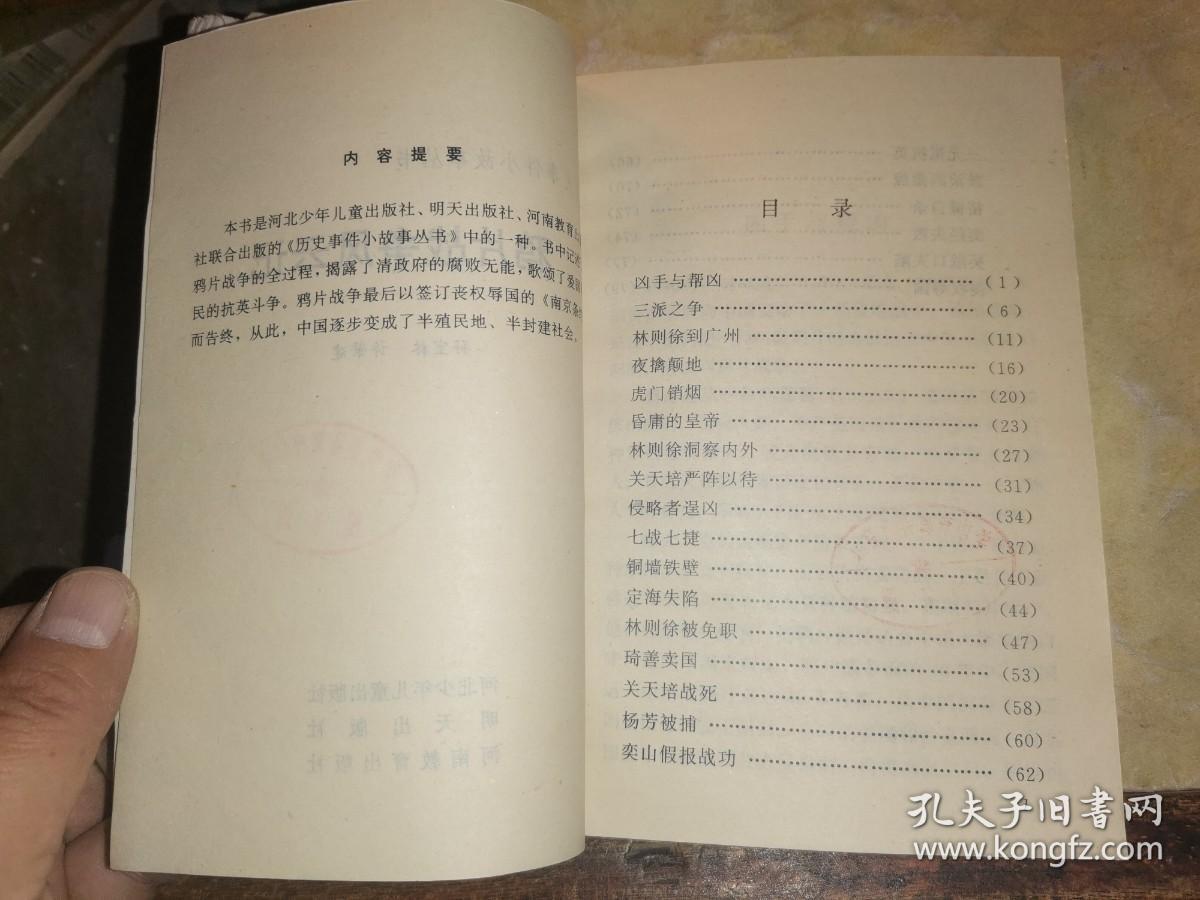 内容提要
本书是河北少年儿童出版社、明天出版社、河南教育出
社联合出版的《历史事件小故事丛书》中的一种。书中记述
鸦片战争的全过程，揭露了清政府的腐败无能，歌颂了爱国
民的抗英斗争。鸦片战争最后以签订丧权辱国的《南京条
而告终，从此，中国逐步变成了半殖民地、半封建社会。
目录
凶手与帮凶 (1)
三派之争 (6)
林则徐到广州 (11)
夜擒颠地 (16)
虎门销烟 (20)
昏庸的皇帝 (23)
林则徐洞察内外 (27)
关天培严阵以待 (31)
侵略者逞凶 (34)
七战七捷 (37)
铜墙铁壁 (40)
定海失陷 (44)
林则徐被免职 (47)
琦善卖国 (53)
关天培战死 (58)
杨芳被捕 (60)
奕山假报战功 (62)
孔夫子旧书网
www.kongfz.com